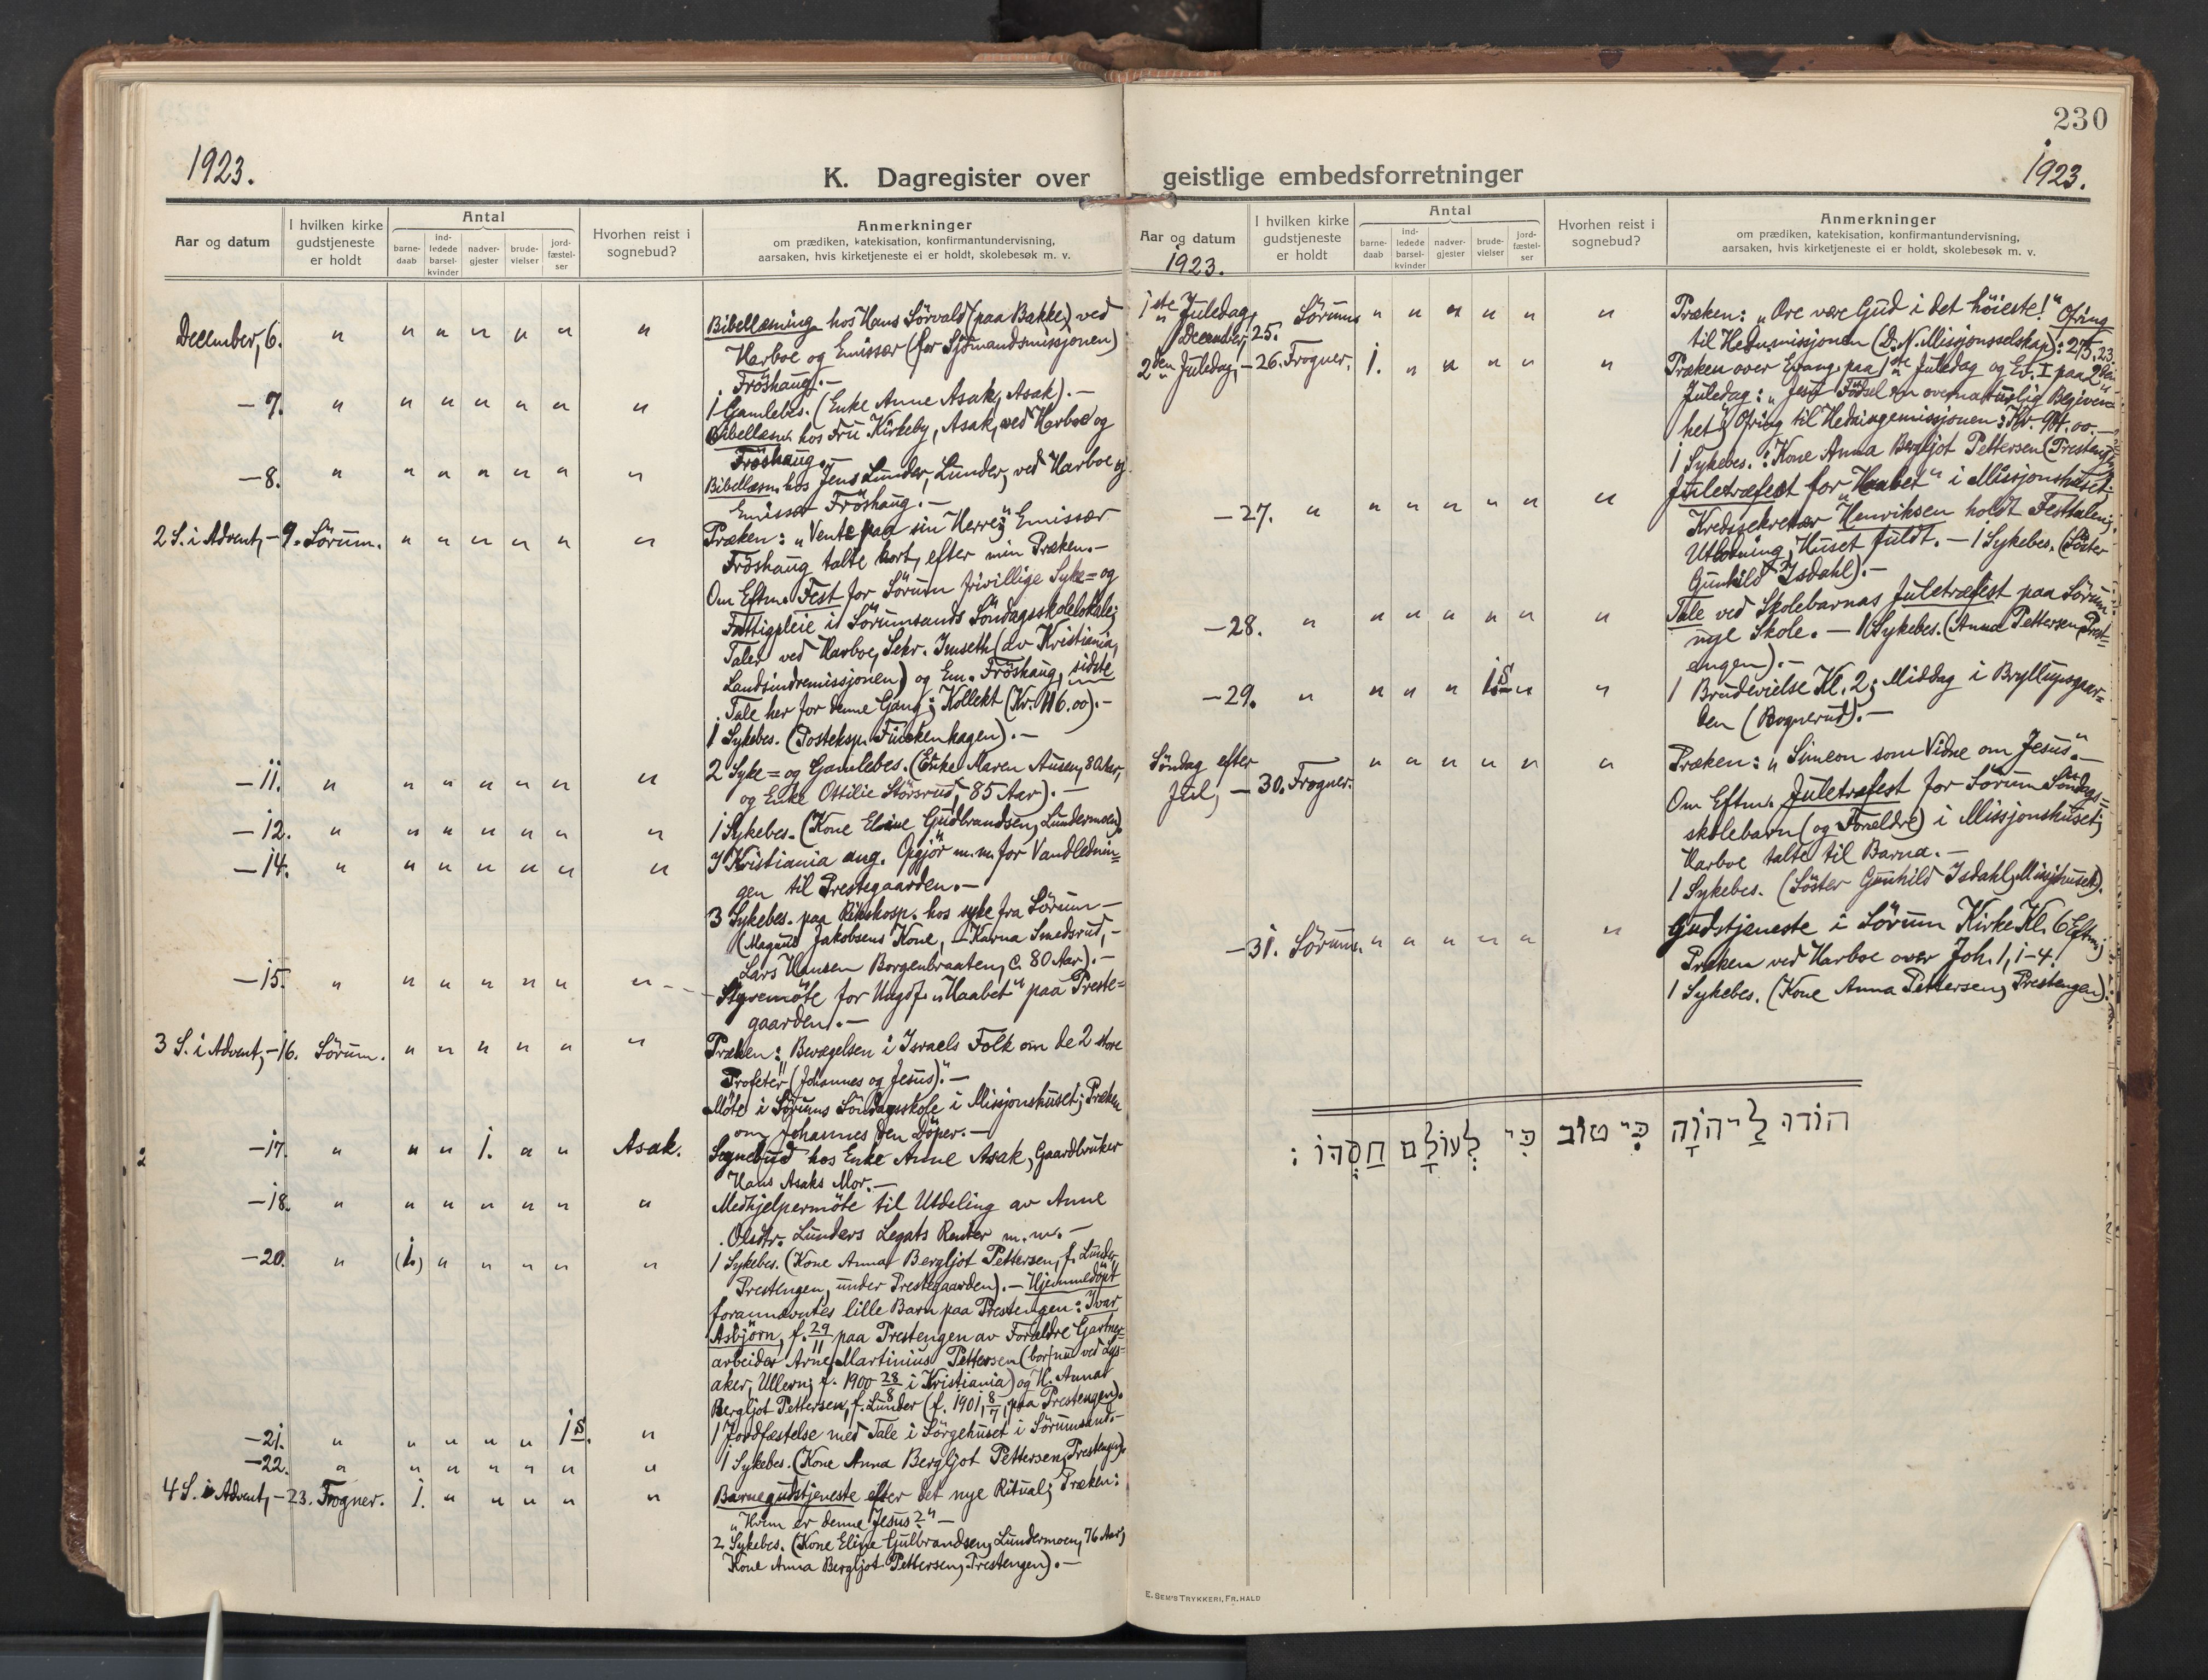 230
1923.
1923.
K. Dagregister over geistlige embedsforretninger
Aar og datum
I hvilken kirke gudstjeneste er holdt
Antal
barne-daab
ind-ledede barsel-kvinder
nadver-gjester
brude-vielser
jord-fæstel-ser
Hvorhen reist i sognebud?
Anmerkninger
om prædiken, katekisation, konfirmantundervisning,
aarsaken, hvis kirketjeneste ei er holdt, skolebesøk m. v.
December, 6. " " " " " " " Bibellæsning hos Hans Sörvald (paa Bakke) ved
Harboe og Emissær (for Sjömandsmissjonen)
Fröshaug.-
- 7. " " " " " " " 1 Gamlebes. (Enke Anne Asak, Asak).-
Bibellæsn. hos Fru Kirkeby, Asak, ved Harboe og
Fröshaug.-
- 8. " " " " " " " Bibellæsn. hos Jens Lunder, Lunder, ved Harboe og
Emissær Fröshaug.-
2 S. i Advent, - 9. Sörum. " " " " " " Præken: "Vente paa sin Herre;" Emissær
Fröshaug talte kort, efter min Præken.-
Om Eftm. Fest for Sörum frivillige Syke= og
Fattigpleie i Sörumsands Söndagsskolelokale;
Taler ved Harboe, Sekr. Imseth (av Kristiania,
Landsindremissjonen) og Em. Fröshaug, sidste
Tale her for denne Gang; Kollekt (Kr. 116.00).-
1 Sykebes. (Posteksp. Finckenhagen).-
- 11. " " " " " " " 2 Syke= og Gamlebes. (Enke Maren Ausen, 80 Aar,
og Enke Ottilie Störsrud, 85 Aar).-
- 12. " " " " " " " 1 Sykebes. (Kone Eline Gudbrandsen, Lundermoen).
- 14. " " " " " " " I Kristiania ang. Opgjör m.m. for Vandlednin=
gen til Prestegaarden.-
3 Sykebes. paa Rikshosp. hos syke fra Sörum -
(Magnus Jakobsens Kone, - Karna Smedsrud, -
Lars Hansen Borgenbraaten, c. 80 Aar).-
- 15. " " " " " " " Styremöte for Ungdf. "Haabet" paa Preste=
gaarden.-
3 S. i Advent, - 16. Sörum. " " " " " " Præken: "Bevægelsen i Israels Folk om de 2 store
Profeter (Johannes og Jesus)."-
Möte i Sörums Söndagsskole i Missjonshuset; Præken
om Johannes den Döper.-
- 17. " " " 1. " " Asak. Sognebud hos Enke Anne Asak, Gaardbruker
Hans Asaks Mor.-
- 18. " " " " " " " Medhjelpermöte til Utdeling av Anne
Olsdtr. Lunders Legats Renter m.m.-
- 20. " (1.) " " " " " 1 Sykebes. (Kone Anna Bergljot Pettersen, f. Lunder
Prestengen, under Prestegaarden).- Hjemmedöpt
forannævntes lille Barn paa Prestengen: Ivar
Asbjörn, f. 29/11 paa Prestengen av Forældre Gartner=
arbeider Arne Martinius Pettersen (bor nu ved Lys=
aker, Ullern; f. 1900 28/8 i Kristiania) og H. Anna
Bergljot Pettersen, f. Lunder (f. 1901, 8/7, paa Prestengen).
- 21. " " " " " 1 S. " 1 Jordfæstelse med Tale i Sörgehuset i Sörumsand.-
- 22. " " " " " " " 1 Sykebes. (Kone Anna Bergljot Pettersen, Prestengen).
4 S. i Advent, - 23. Frogner. 1. " " " " " Barnegudstjeneste efter det nye Ritual; Præken:
"Hvem er denne Jesus?"-
2 Sykebes. (Kone Eline Gulbrandsen, Lundermoen, 76 Aar,
Kone Anna Bergljot Pettersen, Prestengen).-
Aar og datum
1923.
I hvilken kirke gudstjeneste er holdt
Antal
barne-daab
ind-ledede barsel-kvinder
nadver-gjester
brude-vielser
jord-fæstel-ser
Hvorhen reist i sognebud?
Anmerkninger
om prædiken, katekisation, konfirmantundervisning,
aarsaken, hvis kirketjeneste ei er holdt, skolebesøk m. v.
1ste Juledag, December, 25. Sörum. " " " " " " Præken: "Ære være Gud i det höieste!" Ofring
til Hednmissjonen (D. N. Missjonsselskap): 275.23.
2den Juledag, - 26. Frogner. 1. " " " " " Præken over Evang. paa 1ste Juledag og Ev. I paa 2den
Juledag: "Jesu Födsel en overnaturlig Begiven=
het." Ofring til Hedningemissjonen: Kr. 94.00.-
1 Sykebes.: Kone Anna Bergljot Pettersen (Prestengen)
- 27. " " " " " " " Juletræfest for "Haabet" i Missjonshuset;
Kredssekretær Henriksen holdt Festtalen;
Utlodning; Huset fuldt.- 1 Sykebes. (Söster
Gunhild Isdahl).-
- 28. " " " " " " " Tale ved Skolebarnas Juletræfest paa Sörum
nye Skole.- 1 Sykebes. (Anna Pettersen, Prest=
engen).-
- 29. " " " " 1 S. " " 1 Brudevielse Kl. 2; Middag i Bryllupsgaar=
den (Rognerud).-
Söndag efter Jul, - 30. Frogner. " " " " " " Præken: "Simeon som Vidne om Jesus".-
Om Eftm. Juletræfest for Sörum Söndags=
skolebarn (og Forældre) i Missjonshuset;
Harboe talte til Barna.-
1 Sykebes. (Söster Gunhild Isdahl, Missjhuset).
- 31. Sörum. " " " " " " Gudstjeneste i Sörum Kirke Kl. 6 Eftm.;
Præken ved Harboe over Joh. 1, 1-4!
1 Sykebes. (Kone Anna Pettersen, Prestengen).
הוֹדוּ לַיהוָֹה כִּי טוֹב כִּי לְעוֹלָם חַסְדּוֹ :
E. SEM'S TRYKKERI, FR.HALD